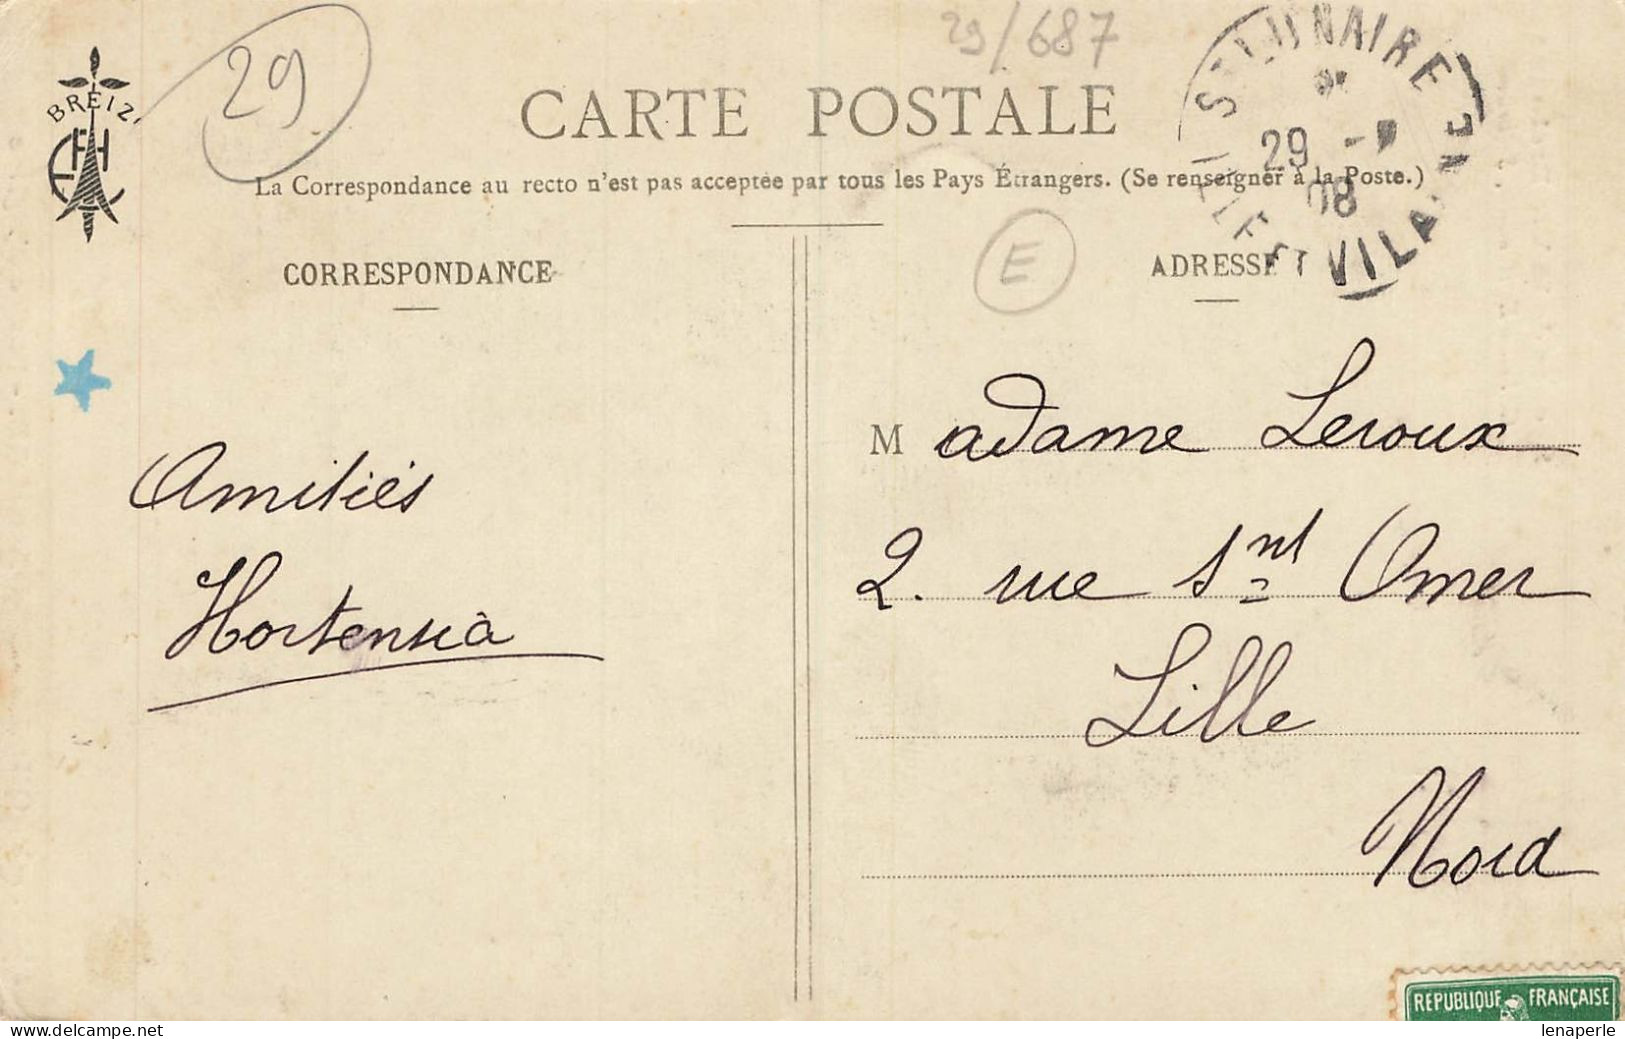 29/687
29
BREIZ
EH
CARTE POSTALE
ST LUNAIRE
29 - 08
ILLE ET VILAINE
La Correspondance au recto n'est pas acceptée par tous les Pays Étrangers. (Se renseigner à la Poste.)
CORRESPONDANCE
E
ADRESSE
Amitiés
Hortensia
M adame Leroux
2. rue Snt Omer
Lille
Nord
REPUBLIQUE FRANÇAISE
lenaperle